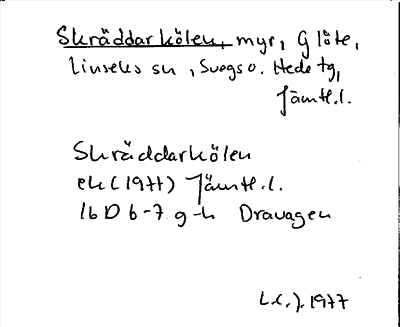 Skräddarkölen, myr, Glöte,
Linsells sn, Svegs o. Hede tg,
Jämtl.l.
Skräddarkölen
ek (1977) Jämtl.l.
16 D 6-7 g-h Dravagen
L.C.J. 1977